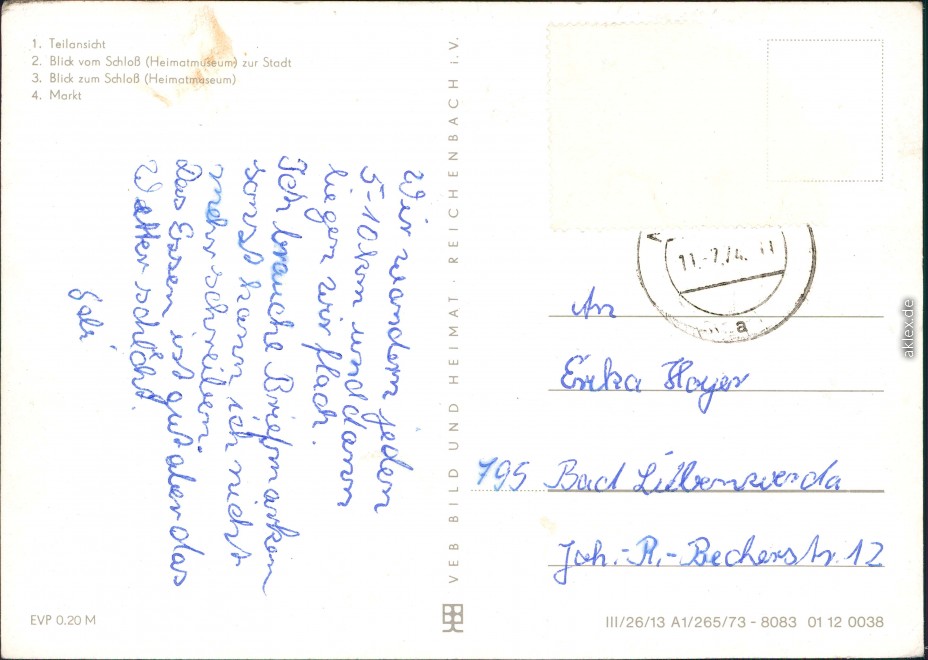 1. Teilansicht
2. Blick vom Schloß (Heimatmuseum) zur Stadt
3. Blick zum Schloß (Heimatmuseum)
4. Markt
Wir wandern jeden
5-10 km und dann
liegen wir flach.
Ich brauche Briefmarken
sonst kann ich nicht
mehr schreiben.
Das Essen ist gut aber das
Wetter schlecht.
Gabi
VEB BILD UND HEIMAT · REICHENBACH i.V.
11.-7.74. 11
a
An
Erika Hoyer
795 Bad Liebenwerda
Joh.-R.-Becherstr. 12
EVP 0.20 M
III/26/13 A1/265/73 - 8083 01 12 0038
aklex.de